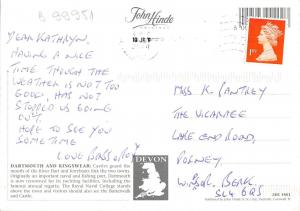 B 99951
John Hinde
1ST
DEAR KATHRYN.
HAVING A NICE
TIME THOUGH THE
WEATHER IS NOT TOO
GOOD, HAS NOT
STOPPED US GOING
OUT.
HOPE TO SEE YOU
SOME TIME
LOVE
MISS K.
THE VICARAGE
LAKE END ROAD,
WINDSOR, BERK
SL4 6QS
DARTMOUTH AND KINGSWEAR: Castles guard the
mouth of the River Dart and
Originally an important naval and fishing port, Dartmouth
is now renowned for its yachting facilities, including the
famous annual regatta. The Royal Naval College stands
above the town and visitors should also see the Butterwalk
and Castle.
DEVON